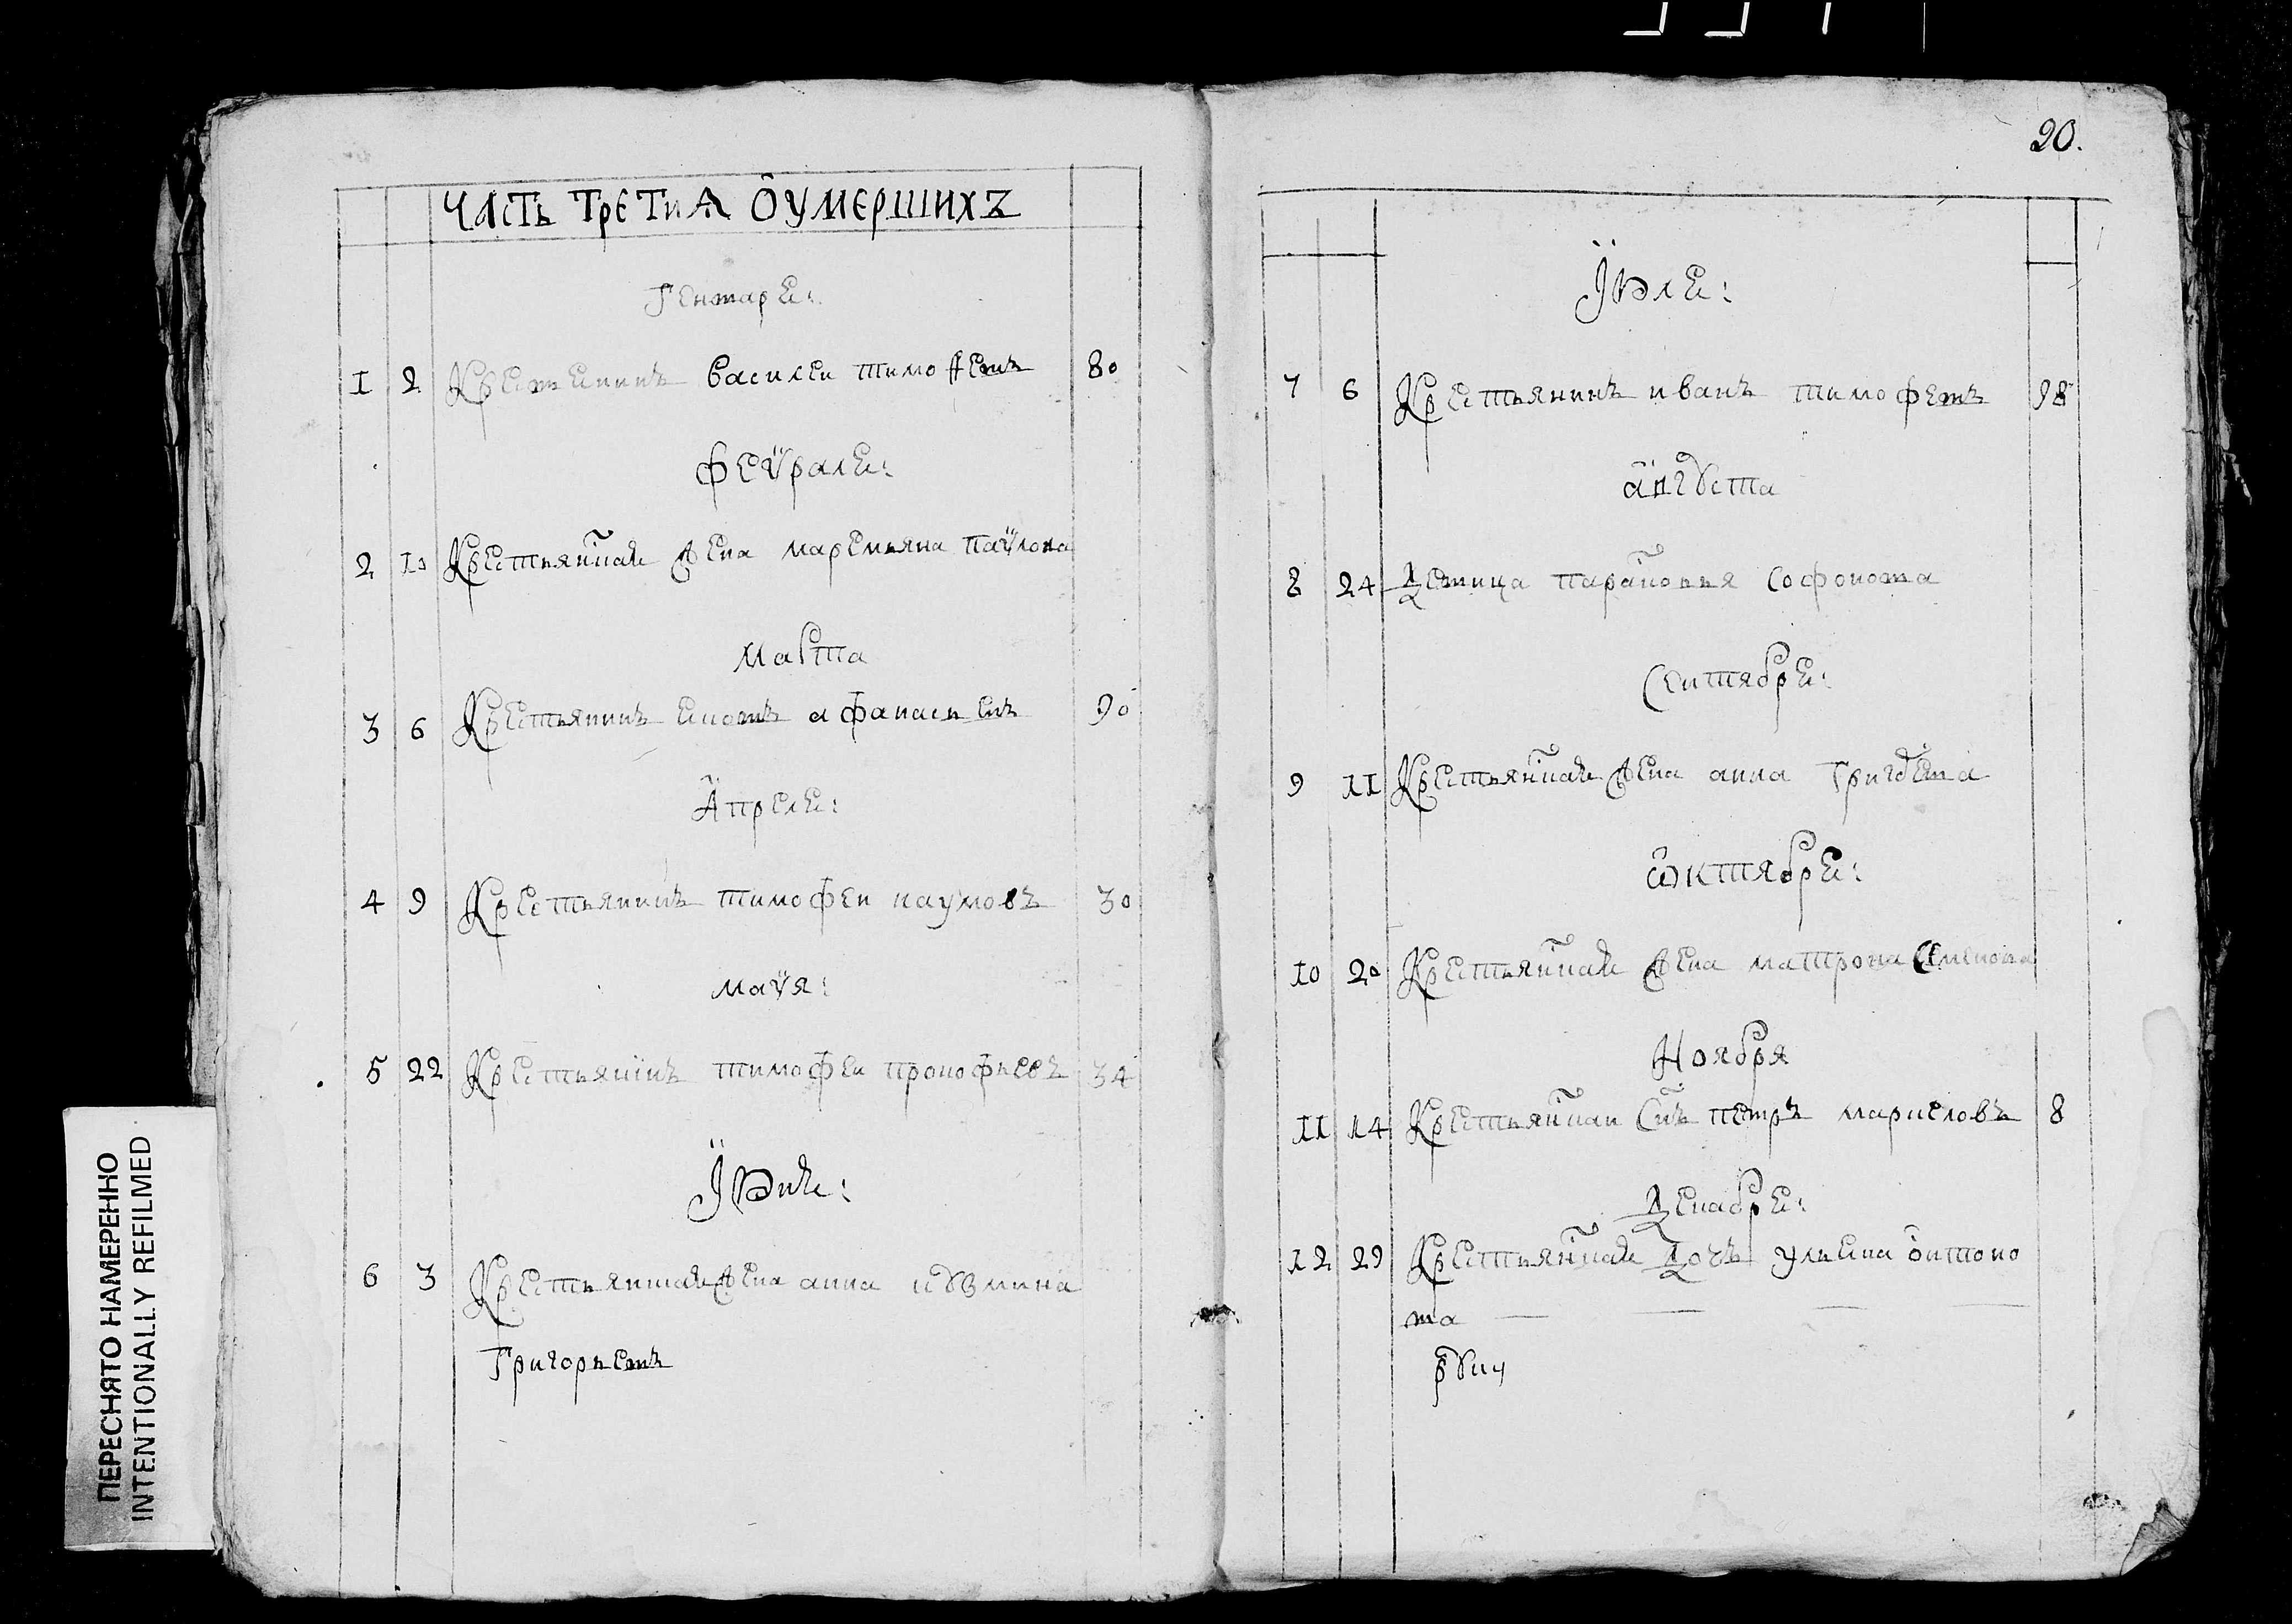 20.
ЧАСТЬ ТРЕТИѦ ОУМЕРШИХЪ
Генваре:
1 2 Крестенинъ Василеи тимофеевъ 80
Феѵрале:
2 10 Крестьянская жена маремьяна паѵлова
Марта
3 6 Крестьянинъ афанасьевъ 90
Апреле:
4 9 Крестьянинъ тимофеи наумовъ 30
маѵя:
5 22 Крестьянинъ тимофеи прокофьевъ 34
Їюне:
6 3 Крестьянская жена анна
Григорьевъ
Їюле:
7 6 Крестьянинъ иванъ тимофеевъ 98
аѵгуста
8 24 Девица Софонова
Сентябре:
9 11 Крестьянская жена анна
Ѡктябре:
10 20 Крестьянская жена матрона Семенова
Ноября
11 14 Крестьянскаи Снъ петръ 8
Декабре:
12 29 Крестьянская дочь ульена
ва
ПЕРЕСНЯТО НАМЕРЕННО
INTENTIONALLY REFILMED